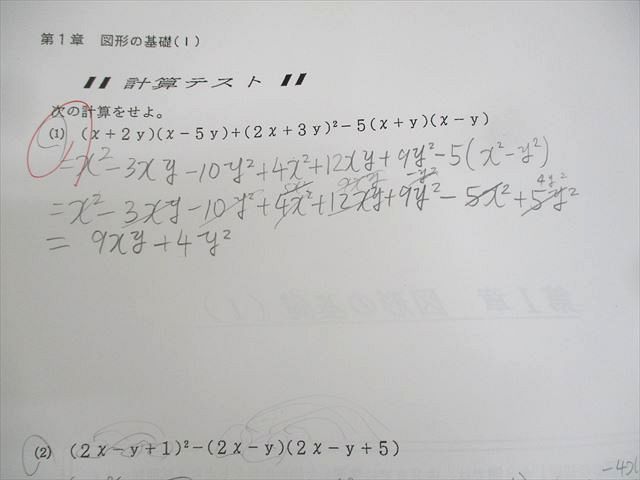 第1章 図形の基礎(Ⅰ)
計算テスト
次の計算をせよ。
(1) (x+2y)(x-5y)+(2x+3y)²-5(x+y)(x-y)
=x²-3xy-10y²+4x²+12xy+9y²-5(x²-y²)
-y² 4y²
=x²-3xy-10y²+4x²+12xy+9y²-5x²+5y²
= 9xy+4y²
第1章 図形の基礎(Ⅰ)
(2) (2x-y+1)²-(2x-y)(2x-y+5)